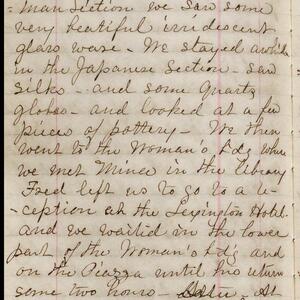 = man section we saw some
very beautiful irridescent
glass ware - We stayed awhile
in the Japanese Section - saw
silks - and some Quartz
globes - and looked at a few
pieces of pottery - We then
went to the Woman's Bdg where
we met Minnie in the library
Fred left us to go to a re-
ception at the Lexington Hotel
and we waited in the lower
part of the Woman's bdg and
on the Piazza until his return
some two hours - At